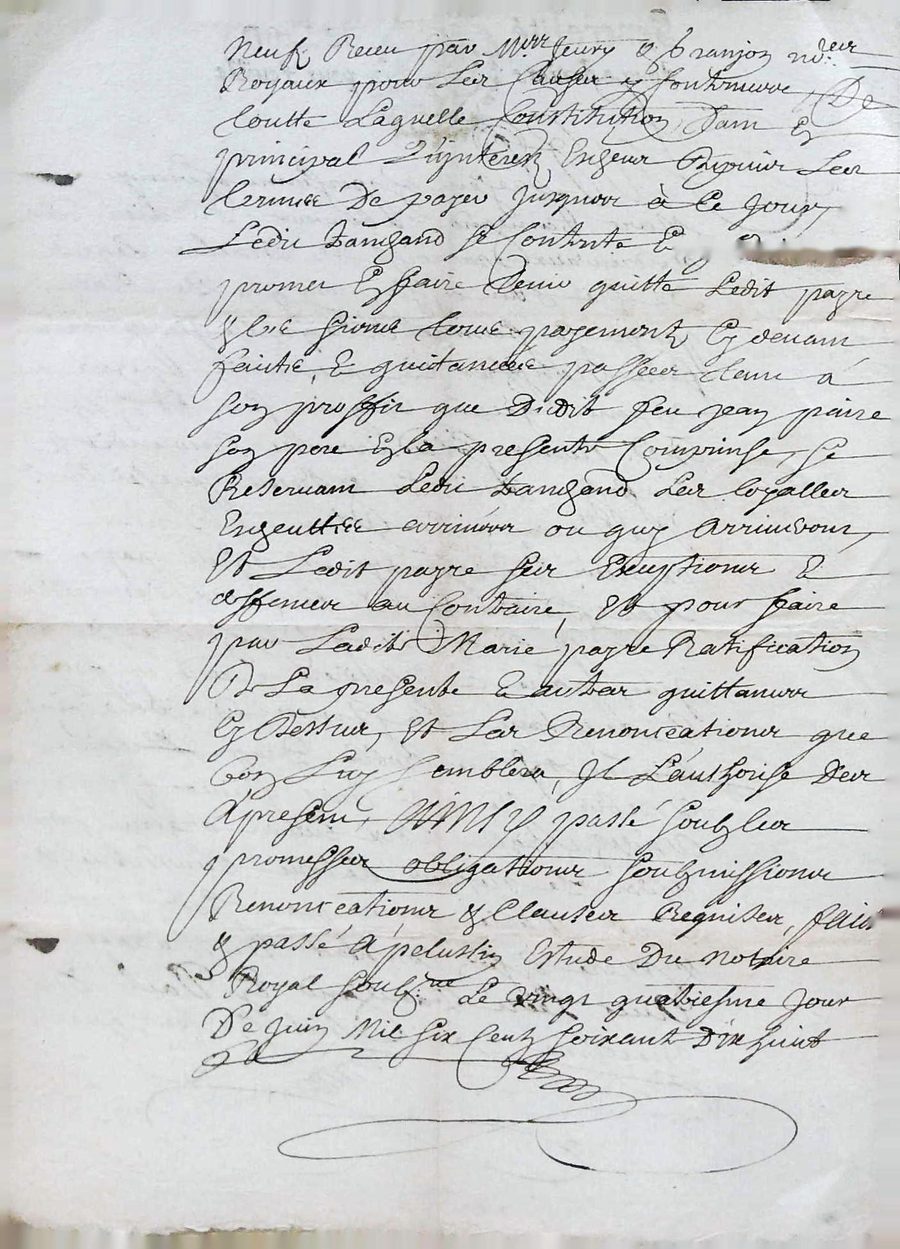 neuf Receu par Mrs Jeury & branjon no.res
Royaux pour les Causes y Contenues, De
toutte Laquelle Constitution, Tant en
principal qu'interest Escheus Depuis Les
termes De payer Jusques à Ce Jour,
Ledit se Contente Et
promet En faire tenir quitte Ledit payre
& les siens tous payements Cy devant
faitz, & quitances passées tant a
son proffit que Dudit feu jean paire
son pere En la presente Comprinse, se
Reservant Ledit Les loyalles
Escheuttes arrivées ou quy Arriveront,
Et Ledit payre ses Exceptions &
deffences au Contraire, Et pour faire
par Ladite Marie payre Ratification
De La presente & autres quittances
Cy Dessus, Et Les Renonceations que
bon Luy Semblera, Jl L'authorise Des
Apresent, Ainsy passé soubz les
promesses obligations soubmissions
Renonceations & Clauses Requises, fait
& passé A pelussin Estude Du notaire
Royal soub.né Le vingt quatriesme Jour
De Juin Mil six Centz Soixant Dix huict